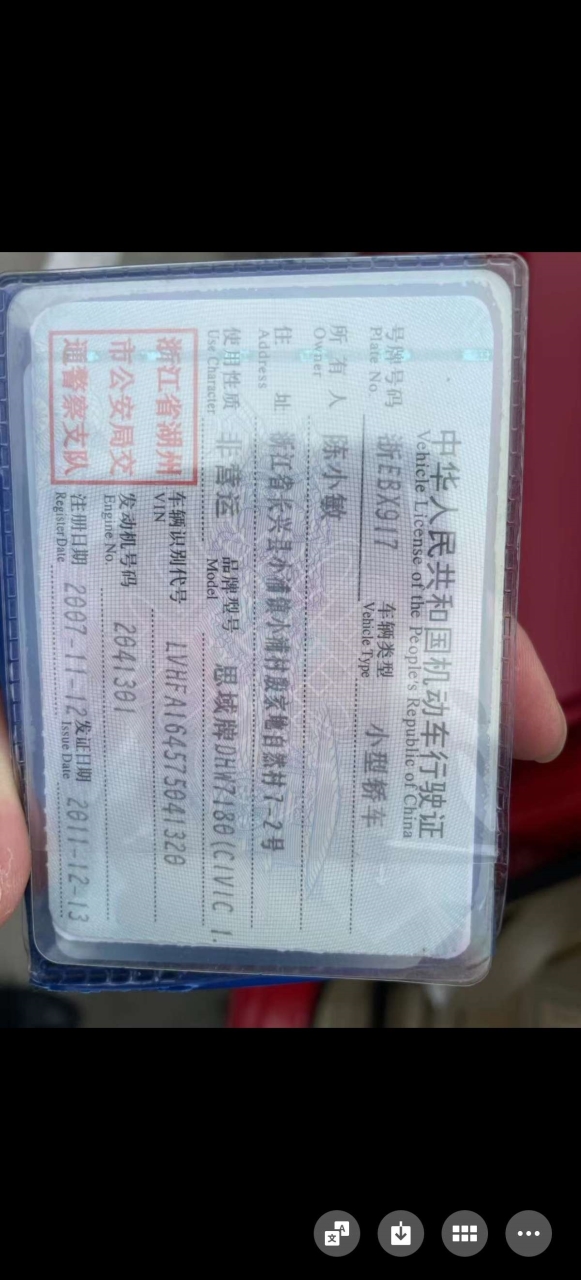 中华人民共和国机动车行驶证
Vehicle License of the People's Republic of China
号牌号码 浙EBX917 车辆类型 小型轿车
Plate No. Vehicle Type
所有人 陈小敏
Owner
住址 浙江省长兴县小浦镇小浦村殷家地自然村7-2号
Address
使用性质 非营运 品牌型号 思域牌DHW7180(CIVIC 1.
Use Character Model
浙江省湖州
市公安局交
通警察支队
车辆识别代号 LVHFA164575041320
VIN
发动机号码 2041301
Engine No.
注册日期 2007-11-12 发证日期 2011-12-13
Register Date Issue Date